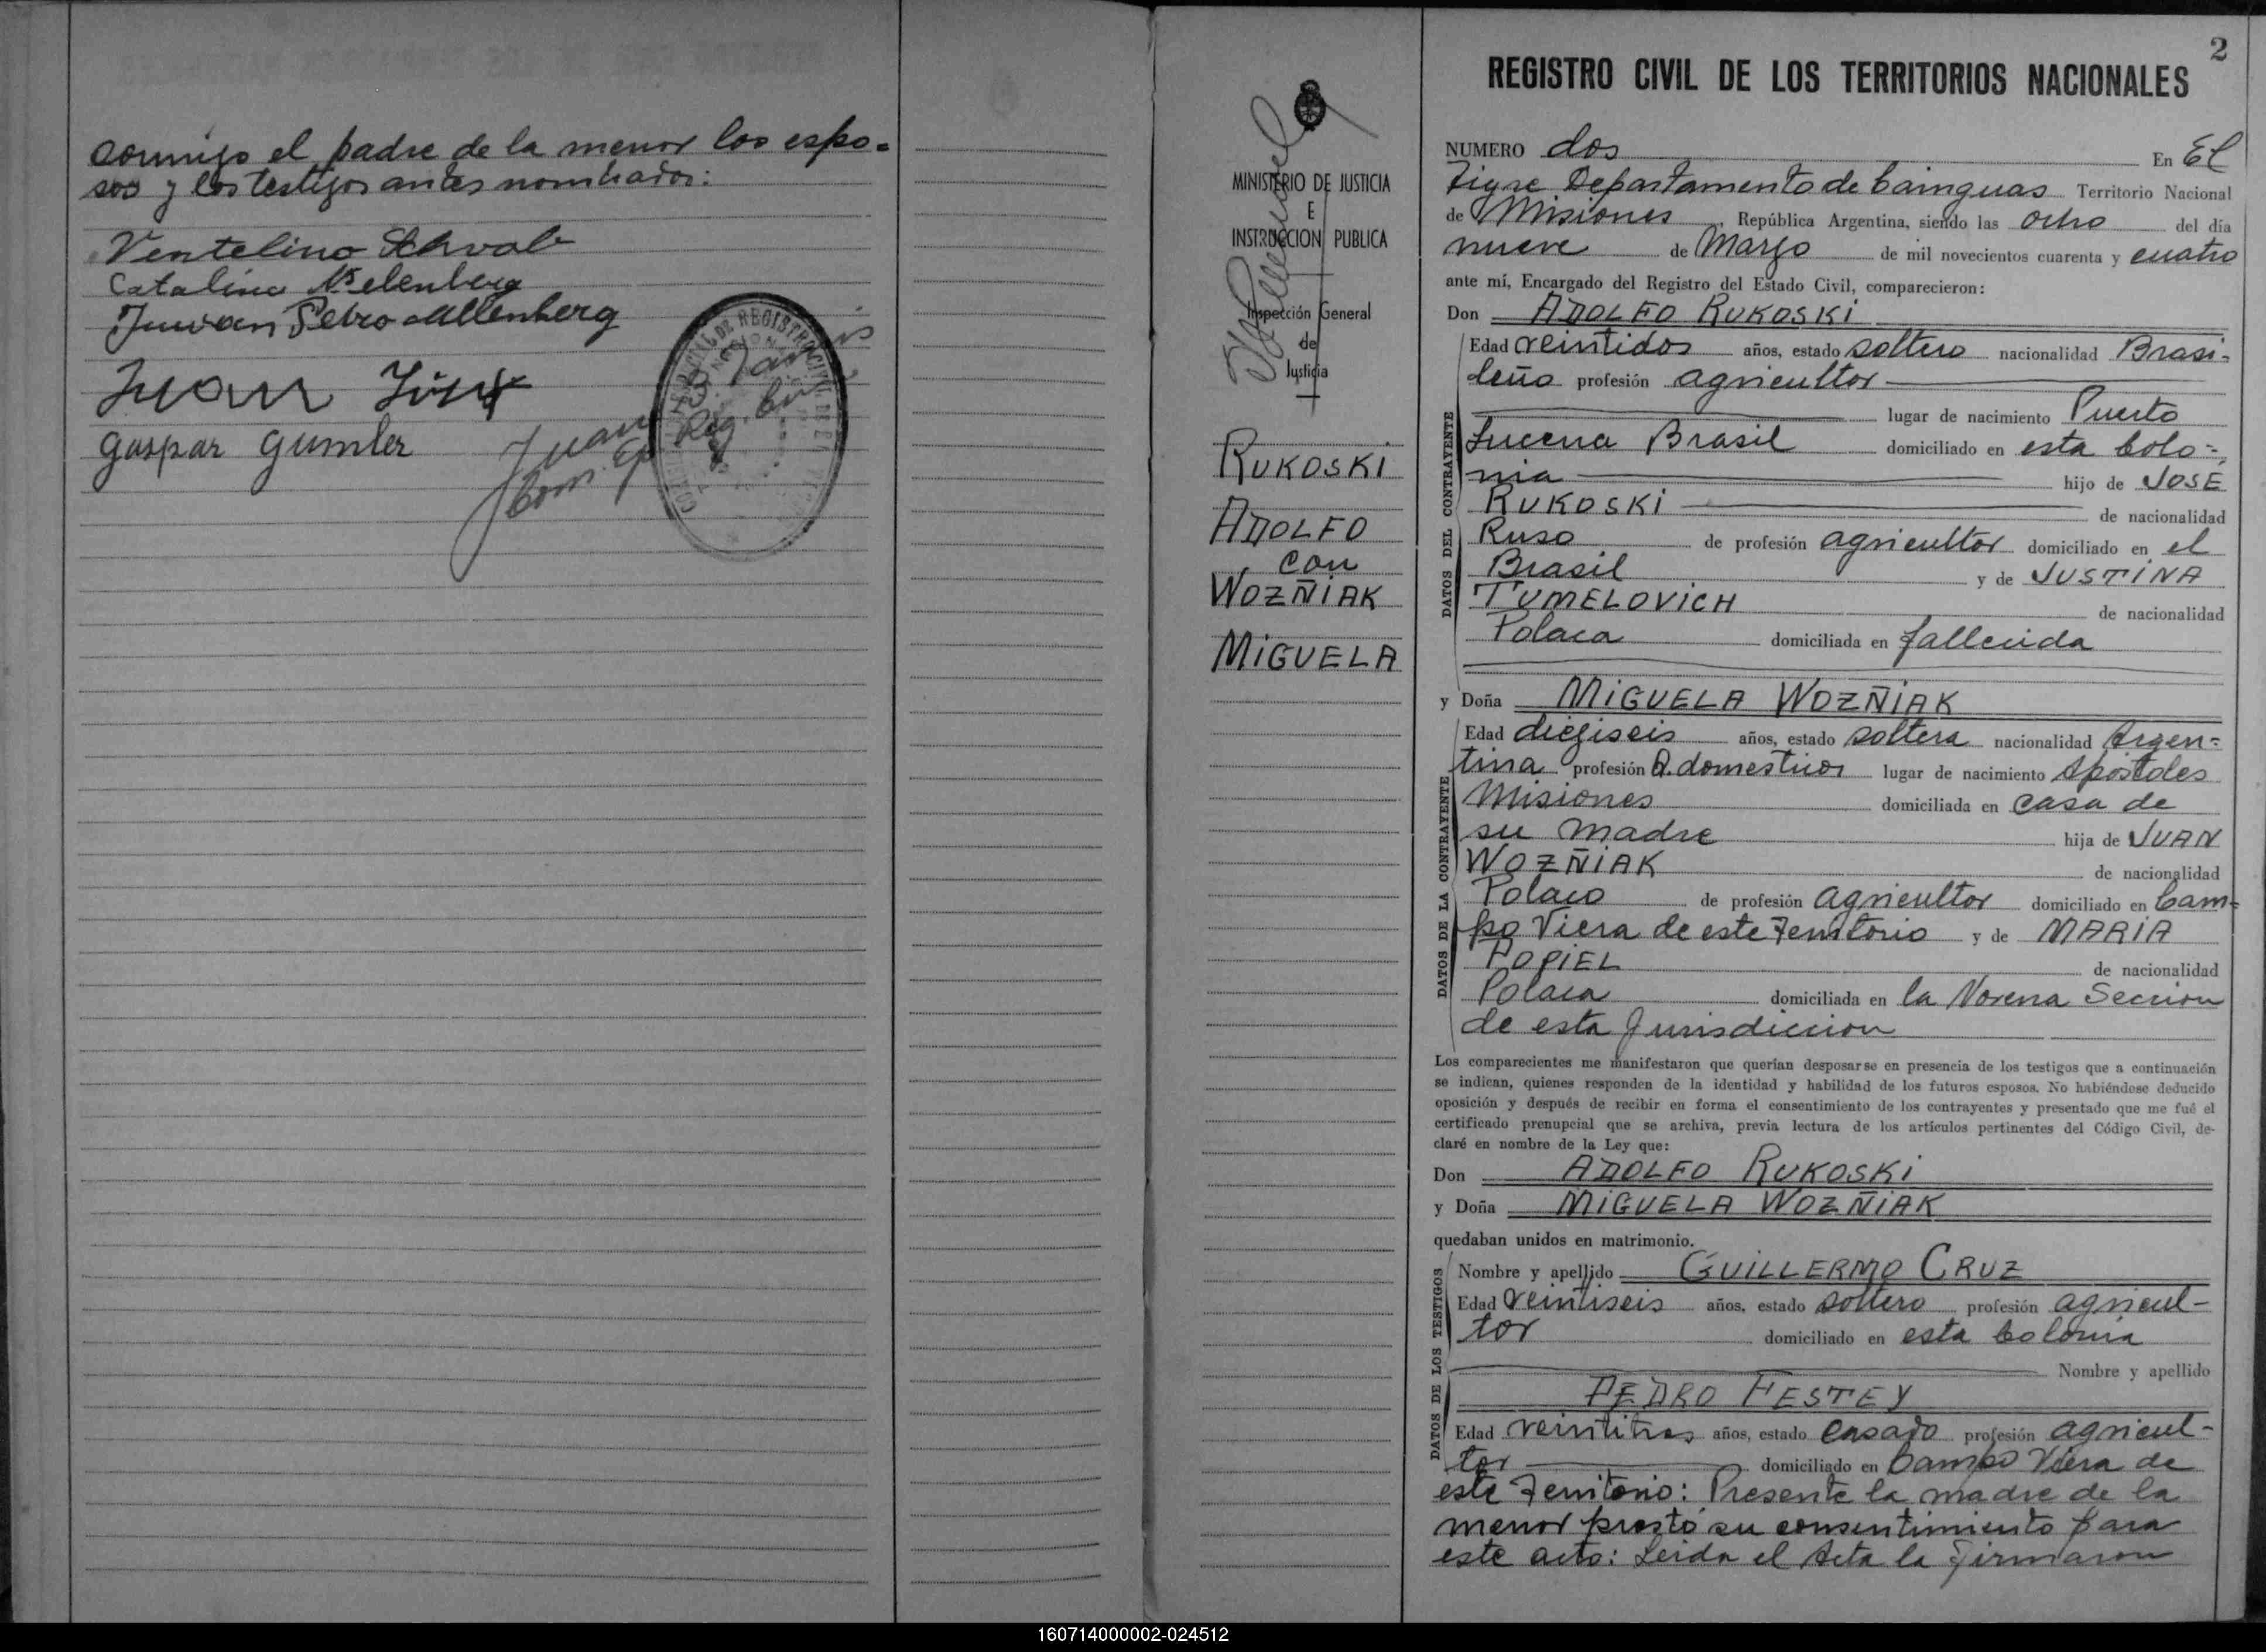 conmigo el padre de la menor los espo=
sos y los testigos antes nombrados:
Ventelino Schvab
Catalina
Juvan Pedro Allenberg
Juan
Gaspar Gumler
Juan
Reg. Civil
2
REGISTRO CIVIL DE LOS TERRITORIOS NACIONALES
MINISTERIO DE JUSTICIA
E
INSTRUCCION PUBLICA
Inspección General
de
Justicia
RUKOSKI
ADOLFO
con
WOZÑIAK
MIGUELA
NUMERO dos En El
Tigre Departamento de Cainguas Territorio Nacional
de Misiones, República Argentina, siendo las ocho del día
nueve de Marzo de mil novecientos cuarenta y cuatro
ante mí, Encargado del Registro del Estado Civil, comparecieron:
Don ADOLFO RUKOSKI
DATOS DEL CONTRAYENTE
Edad veintidos años, estado soltero nacionalidad Brasi-
leño profesión agricultor
lugar de nacimiento Puerto
Lucena Brasil domiciliado en esta Colo=
nia hijo de JOSÉ
RUKOSKI de nacionalidad
Ruso de profesión agricultor domiciliado en el
Brasil y de JUSTINA
TUMELOVICH de nacionalidad
Polaca domiciliada en fallecida
y Doña MIGUELA WOZÑIAK
DATOS DE LA CONTRAYENTE
Edad dieziseis años, estado soltera nacionalidad Argen=
tina profesión Q. domesticos lugar de nacimiento Apostoles
Misiones domiciliada en casa de
su madre hija de JUAN
WOZÑIAK de nacionalidad
Polaco de profesión agricultor domiciliado en Cam=
po Viera de este Territorio y de MARIA
POPIEL de nacionalidad
Polaca domiciliada en la Novena Seccion
de esta Jurisdiccion
Los comparecientes me manifestaron que querían desposarse en presencia de los testigos que a continuación
se indican, quienes responden de la identidad y habilidad de los futuros esposos. No habiéndose deducido
oposición y después de recibir en forma el consentimiento de los contrayentes y presentado que me fué el
certificado prenupcial que se archiva, previa lectura de los artículos pertinentes del Código Civil, de-
claré en nombre de la Ley que:
Don ADOLFO RUKOSKI
y Doña MIGUELA WOZÑIAK
quedaban unidos en matrimonio.
DATOS DE LOS TESTIGOS
Nombre y apellido GUILLERMO CRUZ
Edad veintiseis años, estado soltero profesión agricul-
tor domiciliado en esta Colonia
Nombre y apellido
PEDRO FESTEY
Edad veintitres años, estado casado profesión agricul-
tor domiciliado en Campo Viera de
este Territorio: Presente la madre de la
menor prestó su consentimiento para
este acto: Leida el Acta la firmaron
160714000002-024512